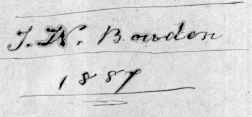 J. W. Bowden
1887